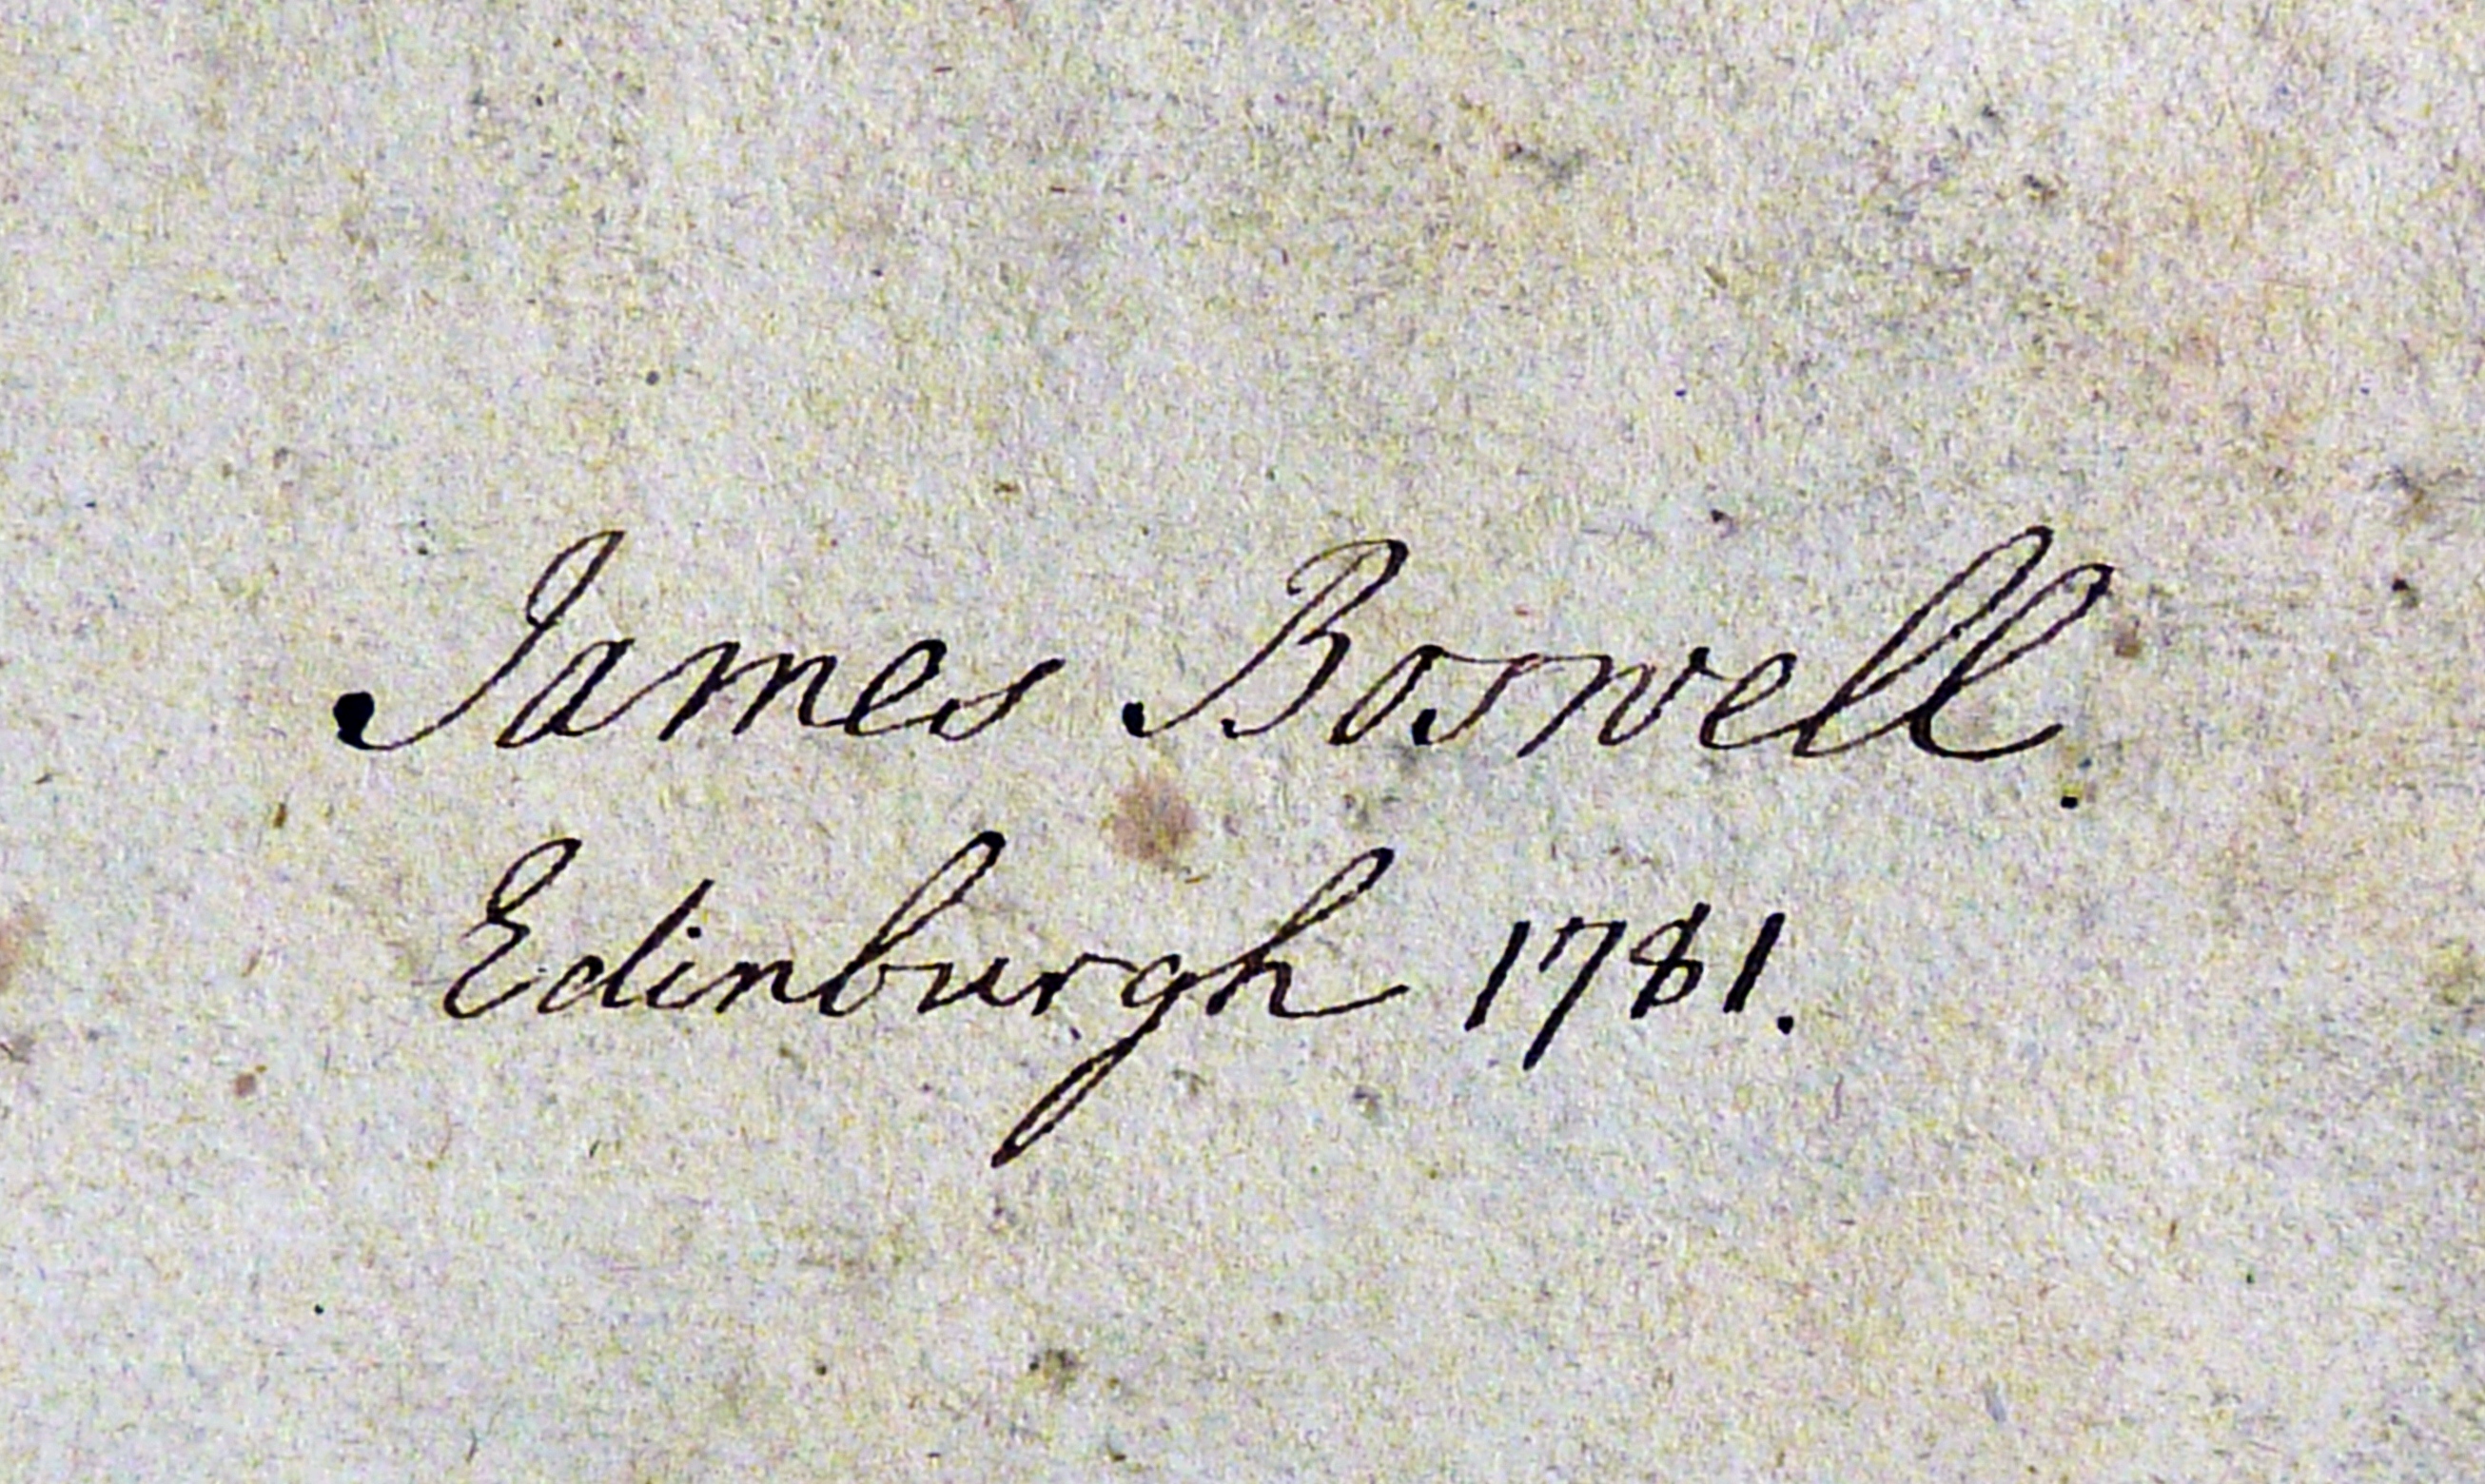 James Boswell.
Edinburgh 1781.